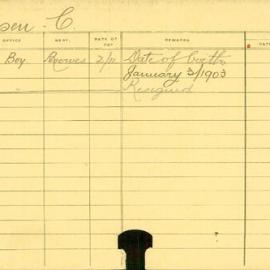 sen C.
OFFICE DEPT. RATE OF PAY REMARKS DATE
Boy Reeves 2/11 Date of birth
January 3/1903
" Resigned